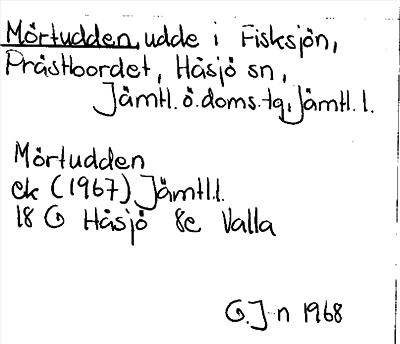 Mörtudden, udde i Fisksjön,
Prästbordet, Håsjö sn,
Jämtl.ö.doms.tg, Jämtl. l.
Mörtudden
ek (1967) Jämtl.l.
18 G Håsjö 8c Valla
G.J-n 1968